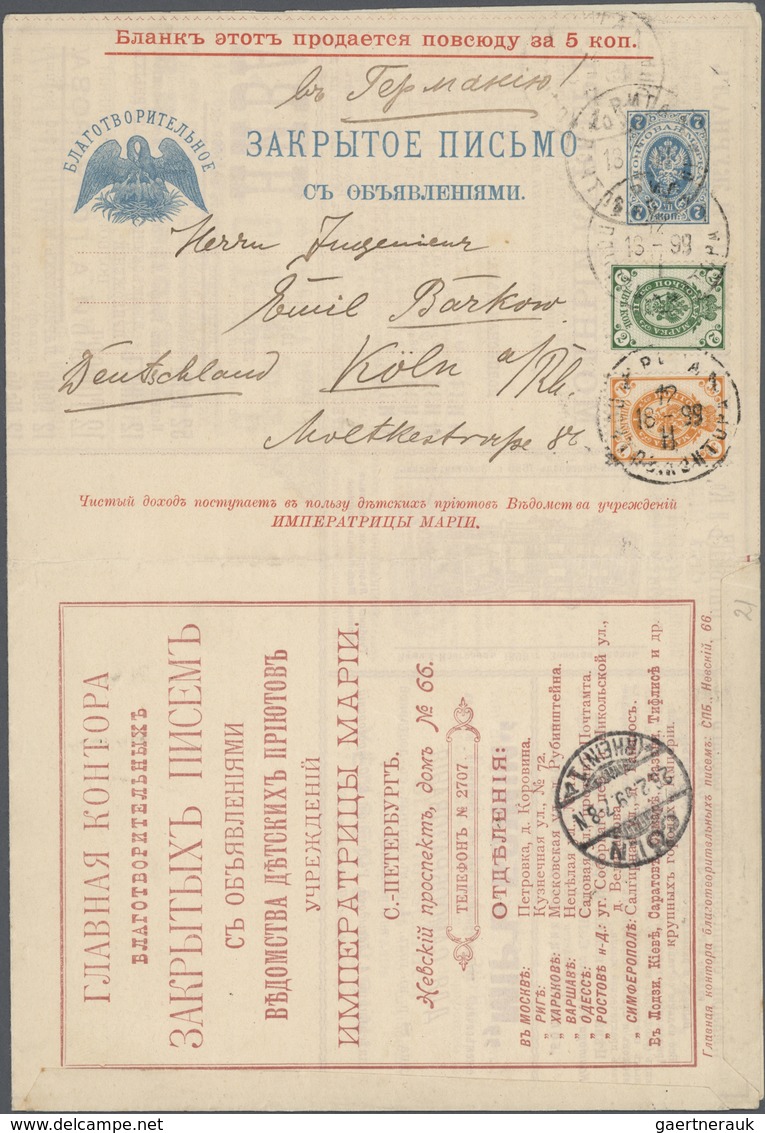 Бланкъ этотъ продается повсюду за 5 коп.
въ Германію!
БЛАГОТВОРИТЕЛЬНОЕ
ЗАКРЫТОЕ ПИСЬМО
СЪ ОБЪЯВЛЕНІЯМИ.
7
7
7
7
18 – 99
Herrn Ingenieur
Emil Barkow
Deutschland Köln a/Rh.
Moltkestraße 82
2
2
2
2
17
18 – 99
II
Чистый доходъ поступаетъ въ пользу дѣтскихъ пріютовъ Вѣдомства учрежденій
ИМПЕРАТРИЦЫ МАРІИ.
21
ГЛАВНАЯ КОНТОРА
БЛАГОТВОРИТЕЛЬНЫХЪ
ЗАКРЫТЫХЪ ПИСЕМЪ
СЪ ОБЪЯВЛЕНІЯМИ
ВѢДОМСТВА ДѢТСКИХЪ ПРІЮТОВЪ
УЧРЕЖДЕНІЙ
ИМПЕРАТРИЦЫ МАРІИ.
С.-ПЕТЕРБУРГЪ.
Невскій проспектъ, домъ № 66.
ТЕЛЕФОНЪ № 2707
ОТДѢЛЕНІЯ:
ВЪ МОСКВѢ: Петровка, д. Коровина.
„ РИГѢ: Кузнечная ул., № 72.
„ ХАРЬКОВѢ: Московская ул. Рубинштейна.
„ ВАРШАВѢ: Нецѣлая
„ ОДЕССѢ: Садовая Почтамта.
„ РОСТОВѢ н-Д.: уг. Соборн Никольской ул.,
„ СИМФЕРОПОЛѢ: Салгирная
Въ Лодзи, Кіевѣ, Саратовѣ Тифлисѣ и др.
крупныхъ
Главная контора благотворительныхъ писемъ: СПБ., Невскій, 66.
CÖLN
(RHEIN) 1
7-8 N
gaertnerauk
delcampe.net